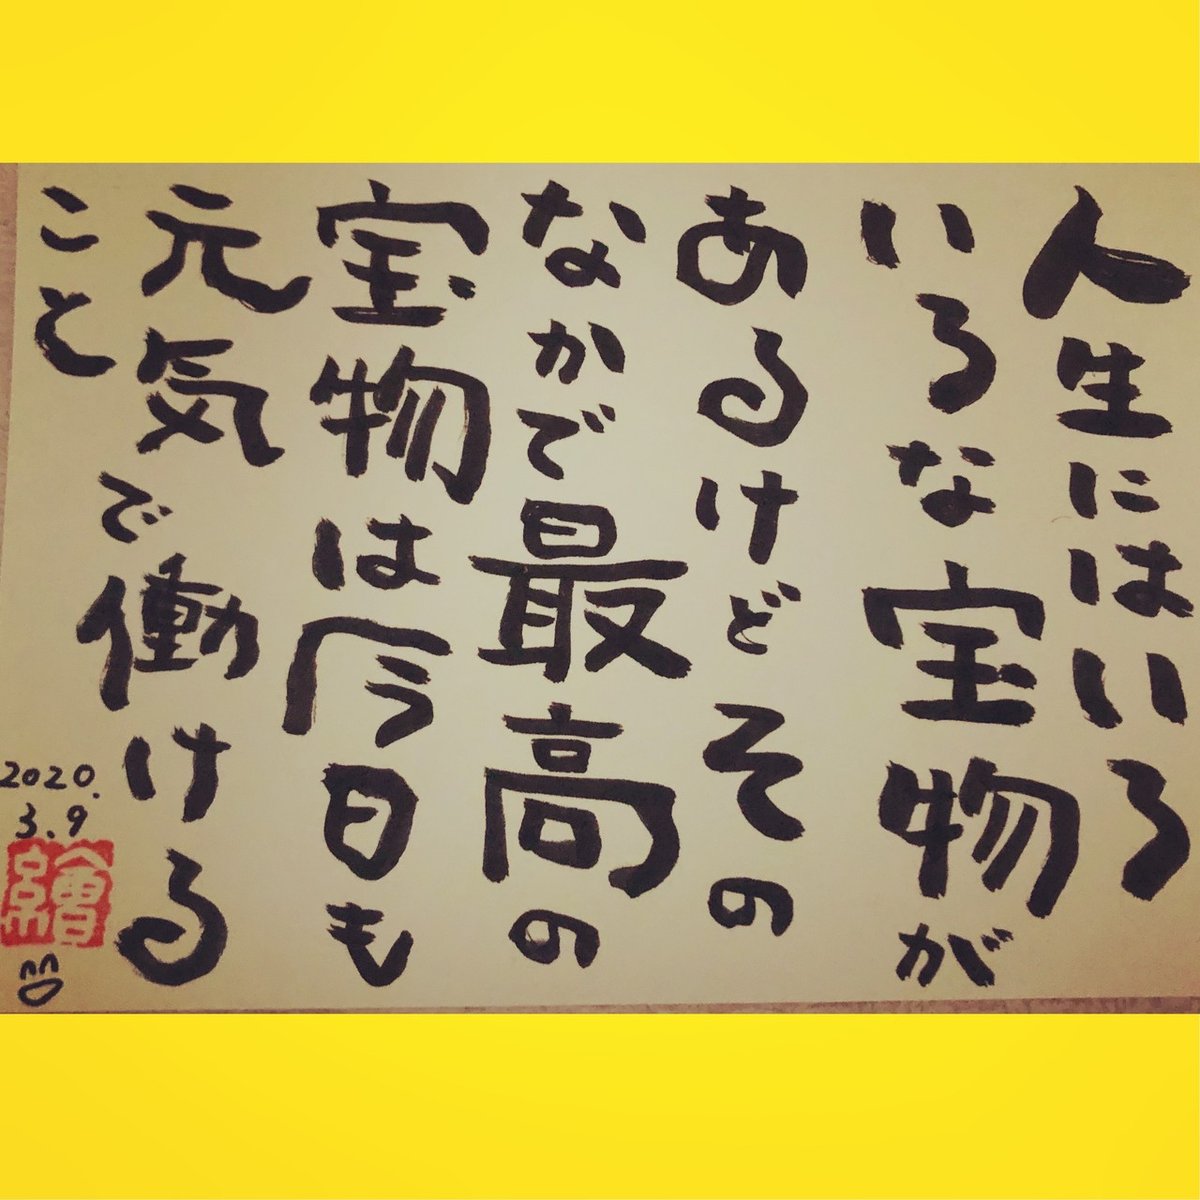 人生にはいろ
いろな宝物が
あるけどその
なかで最高の
宝物は今日も
元気で働ける
こと
2020.
3.9
繪